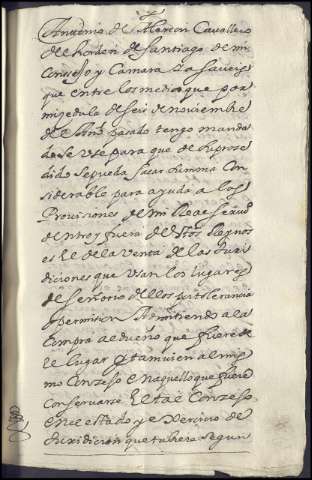 Antonio de Alarcon Cavallero
de la horden de Santiago de mi
Consejo y Camara Ya saveis
que entre los medios que por
mi zedula de seis de noviembre
del año pasado tengo manda
do se use para que de su proce
dido se pueda sacar summa con
siderable para ayuda a las
Provisiones de mi Real servicio
dentro y fuera destos Reynos
es el de la venta de las Juri
diciones que usan los lugares
de señorio dellos por tolerancia
o permision Admitiendo a la
compra al dueño que fuere de
el lugar y tamvien al mis
mo Conzejo en aquello que fuere
conservarse El tal Conzejo
en el estado y exerzicio de
Jurisdicion que tubiere segun